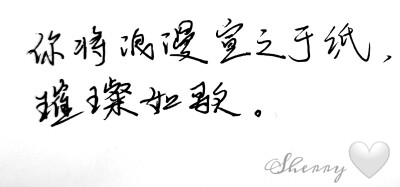 你将浪漫宣之于纸，
璀璨如歌。
Sherry